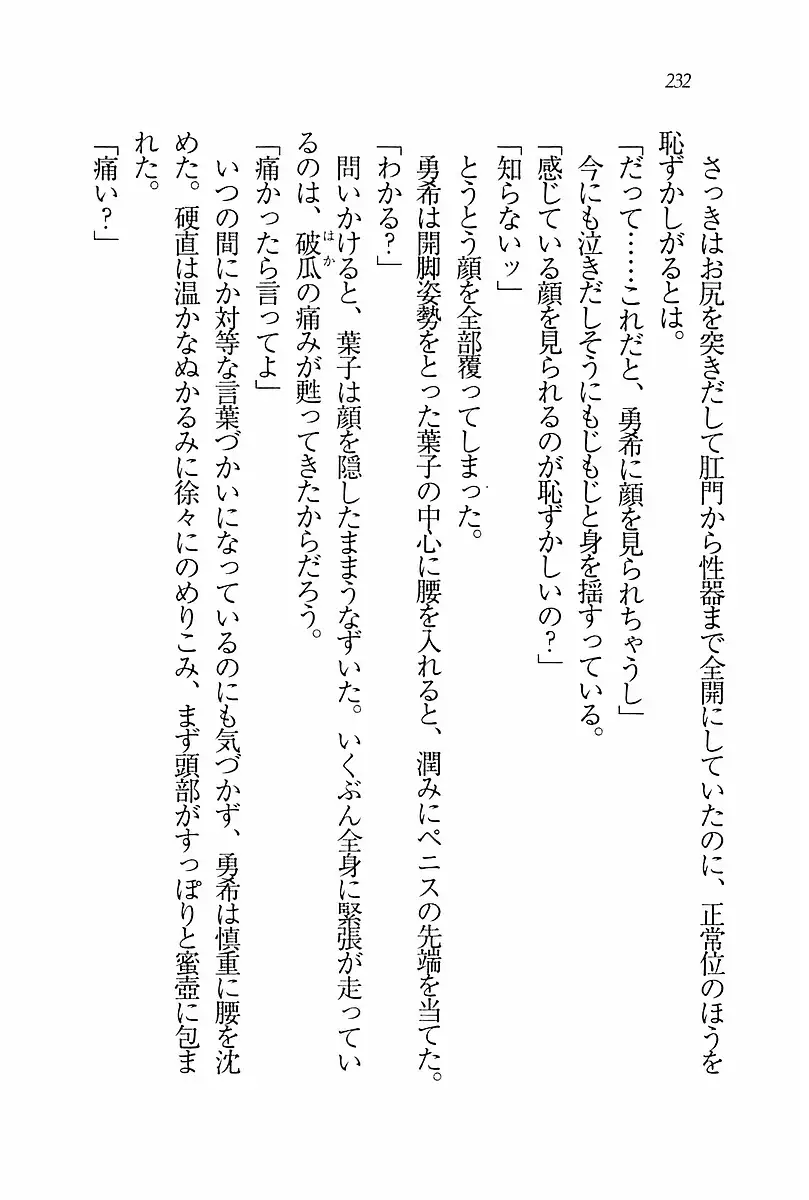 232
さっきはお尻を突きだして肛門から性器まで全開にしていたのに、正常位のほうを
恥ずかしがるとは。
「だって……これだと、勇希に顔を見られちゃうし」
今にも泣きだしそうにもじもじと身を揺すっている。
「感じている顔を見られるのが恥ずかしいの?」
「知らないッ」
とうとう顔を全部覆ってしまった。
勇希は開脚姿勢をとった葉子の中心に腰を入れると、潤みにペニスの先端を当てた。
「わかる?」
問いかけると、葉子は顔を隠したままうなずいた。いくぶん全身に緊張が走ってい
るのは、破瓜はかの痛みが甦ってきたからだろう。
「痛かったら言ってよ」
いつの間にか対等な言葉づかいになっているのにも気づかず、勇希は慎重に腰を沈
めた。硬直は温かなぬかるみに徐々にのめりこみ、まず頭部がすっぽりと蜜壺に包ま
れた。
「痛い?」